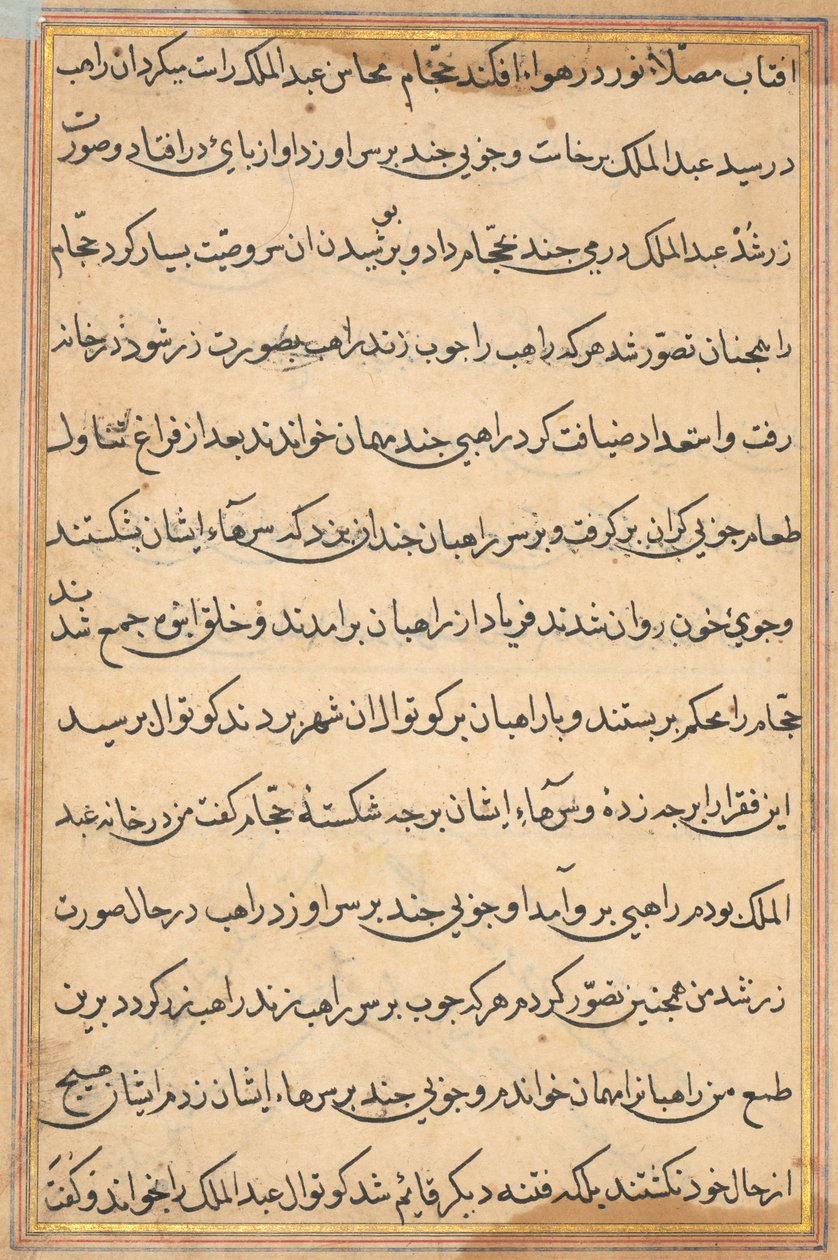 افتاب مصلّاء نور در هواء افکند حجّام محاسن عبد الملک راست میکرد ان راهب
در سید عبد الملک برخاست و جوبی جند بر سر او زد او از بای در افتاد و صورت
زر شُدْ عبد الملک درمی جند بحجّام داد و بر بوشیدن ان سر وصیّت بسیار کرد حجّام
را همجنان تصوّر شد هر که راهب را جوب زند راهب بصورت زر شود در خانه
رفت و استعداد ضیافت کرد راهبی جند مهمان خواندند بعد از فراغ تناول
طعام جوبی کران بر کرفت و بر سر راهبان جندان بزد که سرهاء ایشان بشکستند
و جوئ خون روان شدند فریاد از راهبان برامدند و خلق انبوه جمع شدند
حجّام را محکم بر بستند و با راهبان بر کوتوال ان شهر بردند کوتوال برسید
این فقرا را برجه زدهٔ و سرهاء ایشان برجه شکستهٔ حجّام کفت من در خانه عبد
الملک بودم راهبی بر و آمد او جوبی جند بر سر او زد راهب در حال صورت
زر شد من همجنین تصوّر کردم هر که جوب بر سر راهب زند راهب زر کردد برین
طمع من راهبانرا مهمان خواندم و جوبی جند بر سرهاء ایشان زدم ایشان هیج
از حال خود نکشتند بلکه فتنه دیکر قائم شد کوتوال عبد الملک را بخواند و کفت